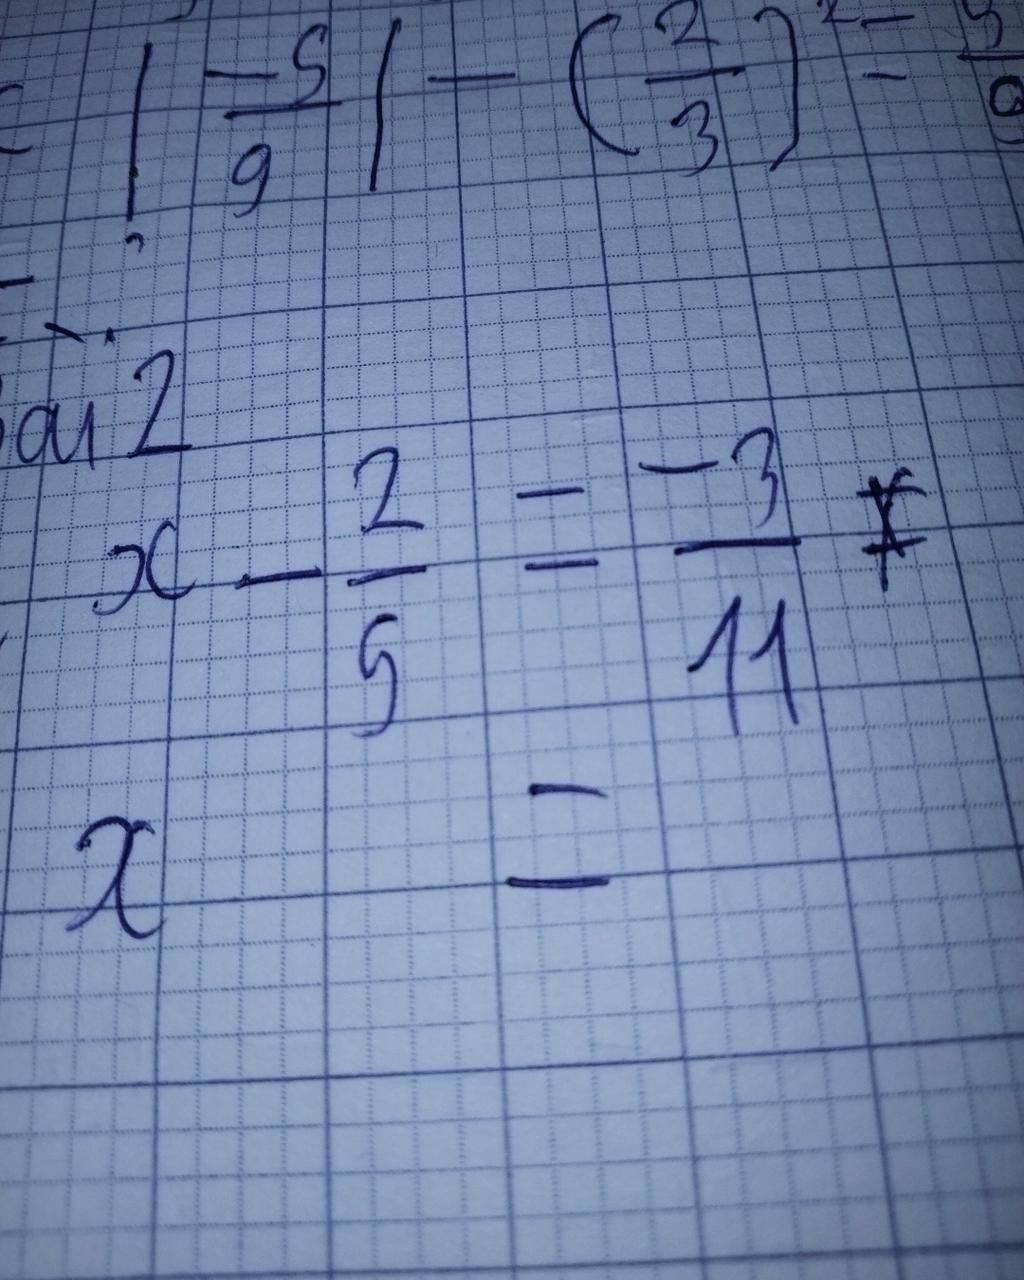 = | -5/9 | - (2/3)² = 5/9
Bài 2
x - 2/5 = -3/11
x =